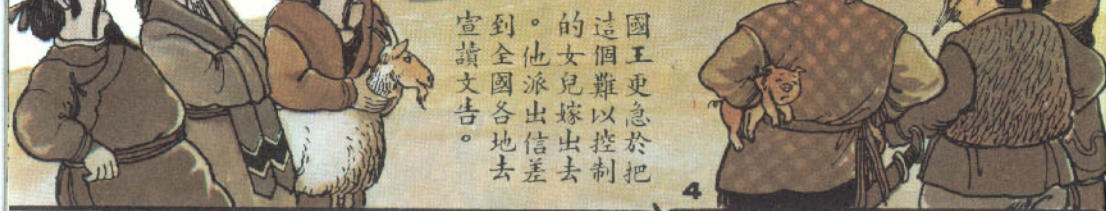 國王更急於把
這個難以控制
的女兒嫁出去
。他派出信差
到全國各地去
宣讀文告。
4